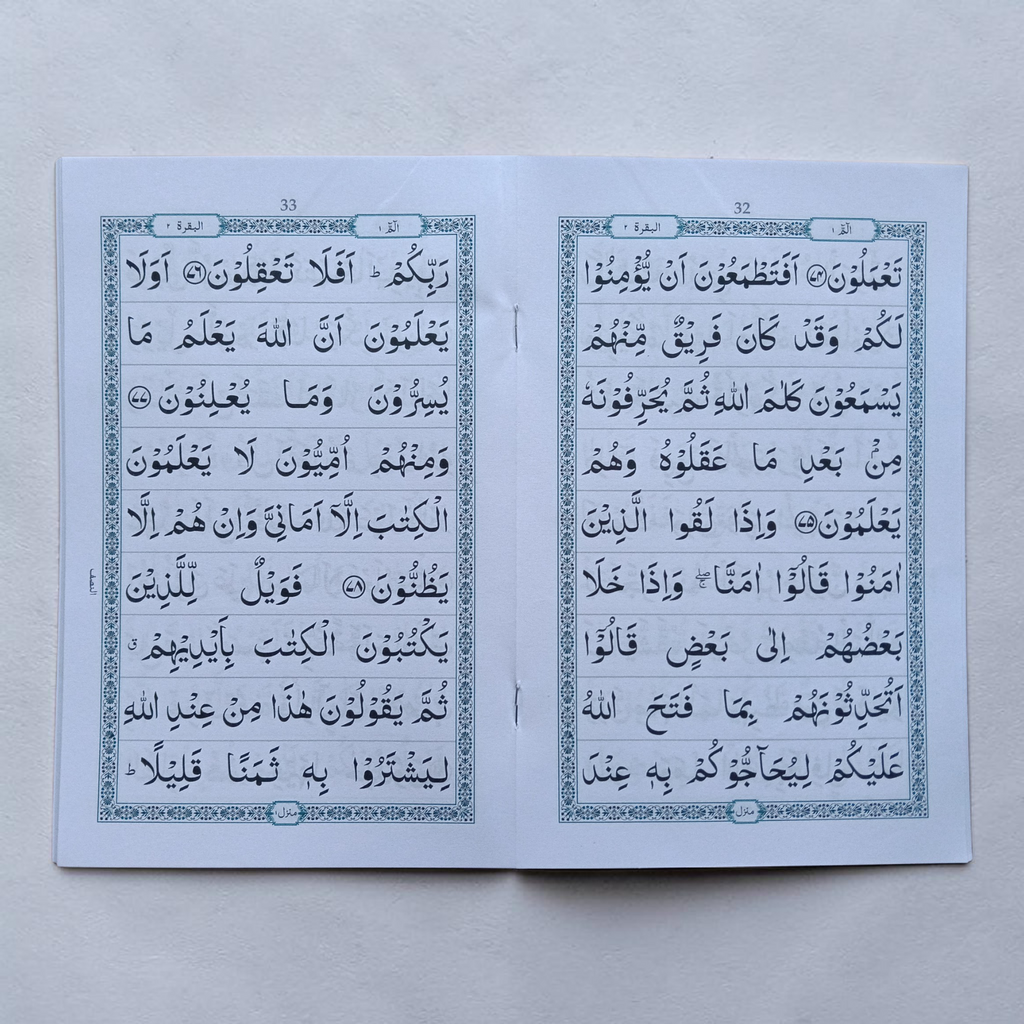 32
الٓمّٓ ١
البقرة ٢
تَعْمَلُوْنَ ﴿۷۴﴾ اَفَتَطْمَعُوْنَ اَنْ يُّؤْمِنُوْا
لَكُمْ وَقَدْ كَانَ فَرِيْقٌ مِّنْهُمْ
يَسْمَعُوْنَ كَلٰمَ اللّٰهِ ثُمَّ يُحَرِّفُوْنَهٗ
مِنْۢ بَعْدِ مَا عَقَلُوْهُ وَهُمْ
يَعْلَمُوْنَ ﴿۷۵﴾ وَاِذَا لَقُوا الَّذِيْنَ
اٰمَنُوْا قَالُوْٓا اٰمَنَّا ۖۚ وَاِذَا خَلَا
بَعْضُهُمْ اِلٰى بَعْضٍ قَالُوْٓا
اَتُحَدِّثُوْنَهُمْ بِمَا فَتَحَ اللّٰهُ
عَلَيْكُمْ لِيُحَآجُّوْكُمْ بِهٖ عِنْدَ
منزل ١
33
الٓمّٓ ١
البقرة ٢
رَبِّكُمْ ؕ اَفَلَا تَعْقِلُوْنَ ﴿۷۶﴾ اَوَلَا
يَعْلَمُوْنَ اَنَّ اللّٰهَ يَعْلَمُ مَا
يُسِرُّوْنَ وَمَا يُعْلِنُوْنَ ﴿۷۷﴾
وَمِنْهُمْ اُمِّيُّوْنَ لَا يَعْلَمُوْنَ
الْكِتٰبَ اِلَّآ اَمَانِيَّ وَاِنْ هُمْ اِلَّا
يَظُنُّوْنَ ﴿۷۸﴾ فَوَيْلٌ لِّلَّذِيْنَ
يَكْتُبُوْنَ الْكِتٰبَ بِاَيْدِيْهِمْ ق
ثُمَّ يَقُوْلُوْنَ هٰذَا مِنْ عِنْدِ اللّٰهِ
لِيَشْتَرُوْا بِهٖ ثَمَنًا قَلِيْلًا ؕ
النصف
منزل ١